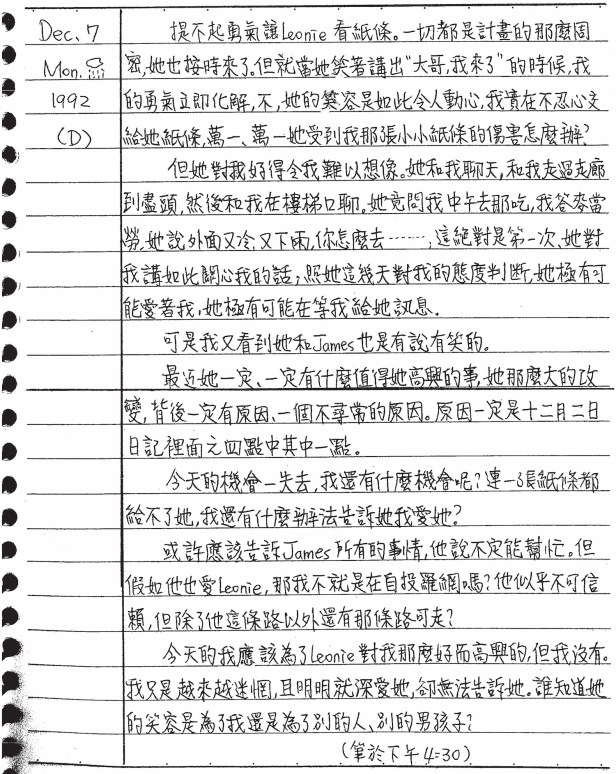 Dec. 7 提不起勇氣讓Leonie 看紙條。一切都是計畫的那麼周
Mon. 密,她也按時來了。但就當她笑著講出“大哥,我來了”的時候,我
1992 的勇氣立即化解,不,她的笑容是如此令人動心,我實在不忍心交
(D) 給她紙條,萬一、萬一她受到我那張小小紙條的傷害怎麼辦?
但她對我好得令我難以想像。她和我聊天,和我走過走廊
到盡頭,然後和我在樓梯口聊。她竟問我中午去那吃,我答麥當
勞,她說外面又冷又下雨,你怎麼去……,這絕對是第一次、她對
我講如此關心我的話,照她這幾天對我的態度判斷,她極有可
能愛著我,她極有可能在等我給她訊息.
可是我又看到她和James也是有說有笑的。
最近她一定、一定有什麼值得她高興的事,她那麼大的改
變,背後一定有原因、一個不尋常的原因。原因一定是十二月二日
日記裡面之四點中其中一點。
今天的機會一失去,我還有什麼機會呢?連一張紙條都
給不了她,我還有什麼辦法告訴她我愛她?
或許應該告訴James 所有的事情,他說不定能幫忙。但
假如他也愛Leonie,那我不就是在自投羅網嗎?他似乎不可信
賴,但除了他這條路以外還有那條路可走?
今天的我應該為了Leonie對我那麼好而高興的,但我沒有。
我又是越來越迷惘,且明明就深愛她,卻無法告訴她。誰知道她
的笑容是為了我還是為了別的人、別的男孩子?
(筆於下午4:30)